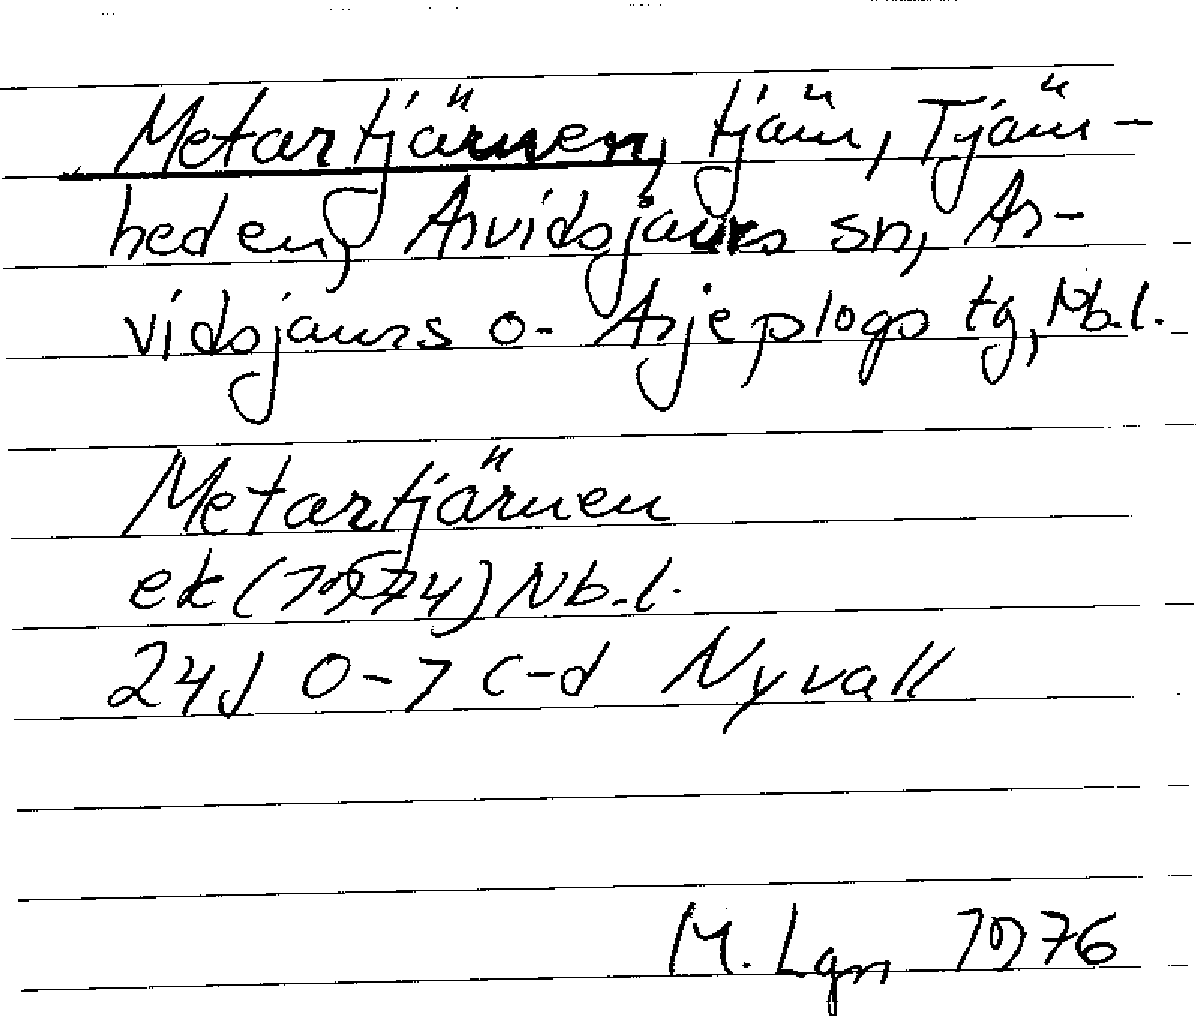 Metartjärnen, tjärn, Tjärn-
heden, Arvidsjaurs sn, Ar-
vidsjaurs o- Arjeplogs tg, Nb.l.
Metartjärnen
ek (1974) Nb.l.
24J 0-1 c-d Nyvall
M. Lgn 1976